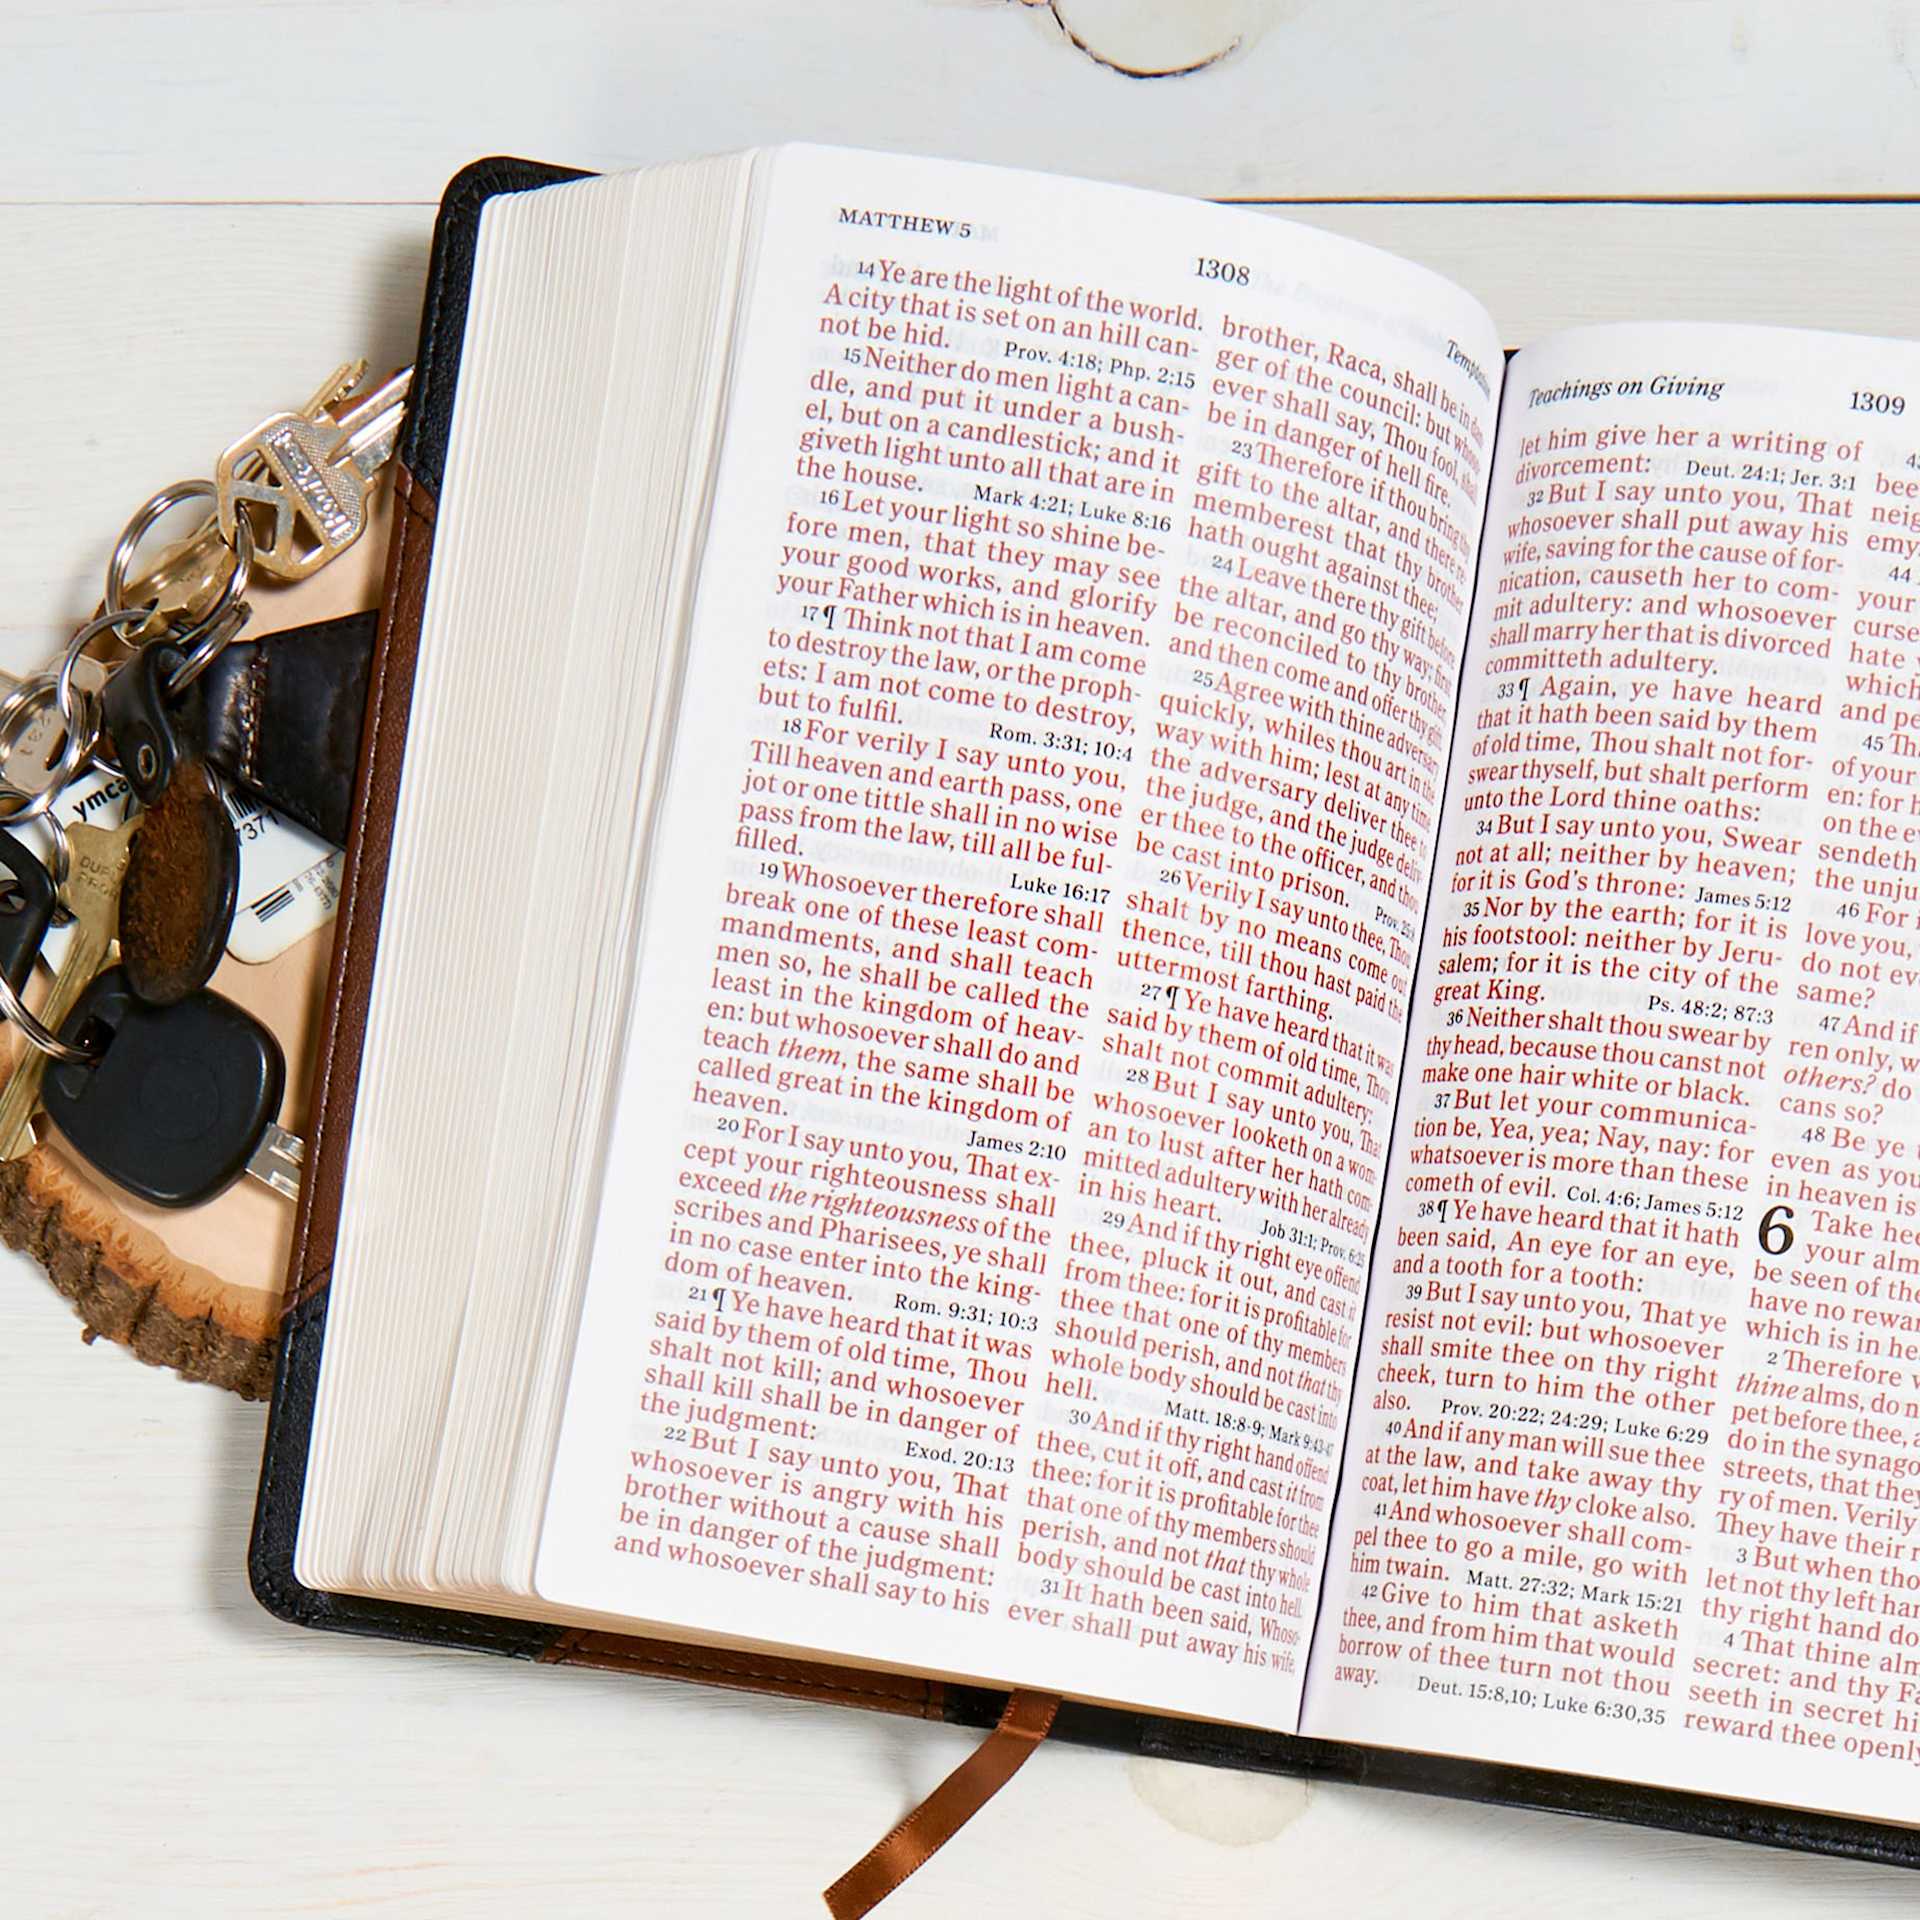 MATTHEW 5
1308
14 Ye are the light of the world.
A city that is set on an hill can-
not be hid. Prov. 4:18; Php. 2:15
15 Neither do men light a can-
dle, and put it under a bush-
el, but on a candlestick; and it
giveth light unto all that are in
the house. Mark 4:21; Luke 8:16
16 Let your light so shine be-
fore men, that they may see
your good works, and glorify
your Father which is in heaven.
17 ¶ Think not that I am come
to destroy the law, or the proph-
ets: I am not come to destroy,
but to fulfil. Rom. 3:31; 10:4
18 For verily I say unto you,
Till heaven and earth pass, one
jot or one tittle shall in no wise
pass from the law, till all be ful-
filled. Luke 16:17
19 Whosoever therefore shall
break one of these least com-
mandments, and shall teach
men so, he shall be called the
least in the kingdom of heav-
en: but whosoever shall do and
teach them, the same shall be
called great in the kingdom of
heaven. James 2:10
20 For I say unto you, That ex-
cept your righteousness shall
exceed the righteousness of the
scribes and Pharisees, ye shall
in no case enter into the king-
dom of heaven. Rom. 9:31; 10:3
21 ¶ Ye have heard that it was
said by them of old time, Thou
shalt not kill; and whosoever
shall kill shall be in danger of
the judgment: Exod. 20:13
22 But I say unto you, That
whosoever is angry with his
brother without a cause shall
be in danger of the judgment:
and whosoever shall say to his
brother, Raca, shall be in dan
ger of the council: but whoso
ever shall say, Thou fool, shall
be in danger of hell fire.
23 Therefore if thou bring thy
gift to the altar, and there re-
memberest that thy brother
hath ought against thee;
24 Leave there thy gift before
the altar, and go thy way; first
be reconciled to thy brother,
and then come and offer thy gift.
25 Agree with thine adversary
quickly, whiles thou art in the
way with him; lest at any time
the adversary deliver thee to
the judge, and the judge deliv-
er thee to the officer, and thou
be cast into prison. Prov. 25:8
26 Verily I say unto thee, Thou
shalt by no means come out
thence, till thou hast paid the
uttermost farthing.
27 ¶ Ye have heard that it was
said by them of old time, Thou
shalt not commit adultery:
28 But I say unto you, That
whosoever looketh on a wom-
an to lust after her hath com-
mitted adultery with her already
in his heart. Job 31:1; Prov. 6:25
29 And if thy right eye offend
thee, pluck it out, and cast it
from thee: for it is profitable for
thee that one of thy members
should perish, and not that thy
whole body should be cast into
hell. Matt. 18:8-9; Mark 9:43-47
30 And if thy right hand offend
thee, cut it off, and cast it from
thee: for it is profitable for thee
that one of thy members should
perish, and not that thy whole
body should be cast into hell.
31 It hath been said, Whoso-
ever shall put away his wife,
Teachings on Giving
1309
let him give her a writing of
divorcement: Deut. 24:1; Jer. 3:1
32 But I say unto you, That
whosoever shall put away his
wife, saving for the cause of for-
nication, causeth her to com-
mit adultery: and whosoever
shall marry her that is divorced
committeth adultery.
33 ¶ Again, ye have heard
that it hath been said by them
of old time, Thou shalt not for-
swear thyself, but shalt perform
unto the Lord thine oaths:
34 But I say unto you, Swear
not at all; neither by heaven;
for it is God's throne: James 5:12
35 Nor by the earth; for it is
his footstool: neither by Jeru-
salem; for it is the city of the
great King. Ps. 48:2; 87:3
36 Neither shalt thou swear by
thy head, because thou canst not
make one hair white or black.
37 But let your communica-
tion be, Yea, yea; Nay, nay: for
whatsoever is more than these
cometh of evil. Col. 4:6; James 5:12
38 ¶ Ye have heard that it hath
been said, An eye for an eye,
and a tooth for a tooth:
39 But I say unto you, That ye
resist not evil: but whosoever
shall smite thee on thy right
cheek, turn to him the other
also. Prov. 20:22; 24:29; Luke 6:29
40 And if any man will sue thee
at the law, and take away thy
coat, let him have thy cloke also.
41 And whosoever shall com-
pel thee to go a mile, go with
him twain. Matt. 27:32; Mark 15:21
42 Give to him that asketh
thee, and from him that would
borrow of thee turn not thou
away. Deut. 15:8,10; Luke 6:30,35
bee
neig
emy
44
your
curse
hate
which
and pe
45 Th
of your
en: for h
on the ev
sendeth
the unju
46 For
love you,
do not ev
same?
47 And if
ren only, w
others? do
cans so?
48 Be ye
even as you
in heaven is
6 Take hee
your alm
be seen of the
have no rewar
which is in he
2 Therefore
thine alms, do n
pet before thee, a
do in the synago
streets, that they
ry of men. Verily
They have their r
3 But when tho
let not thy left han
thy right hand do
4 That thine alm
secret: and thy Fa
seeth in secret hi
reward thee openly
ymca
7371